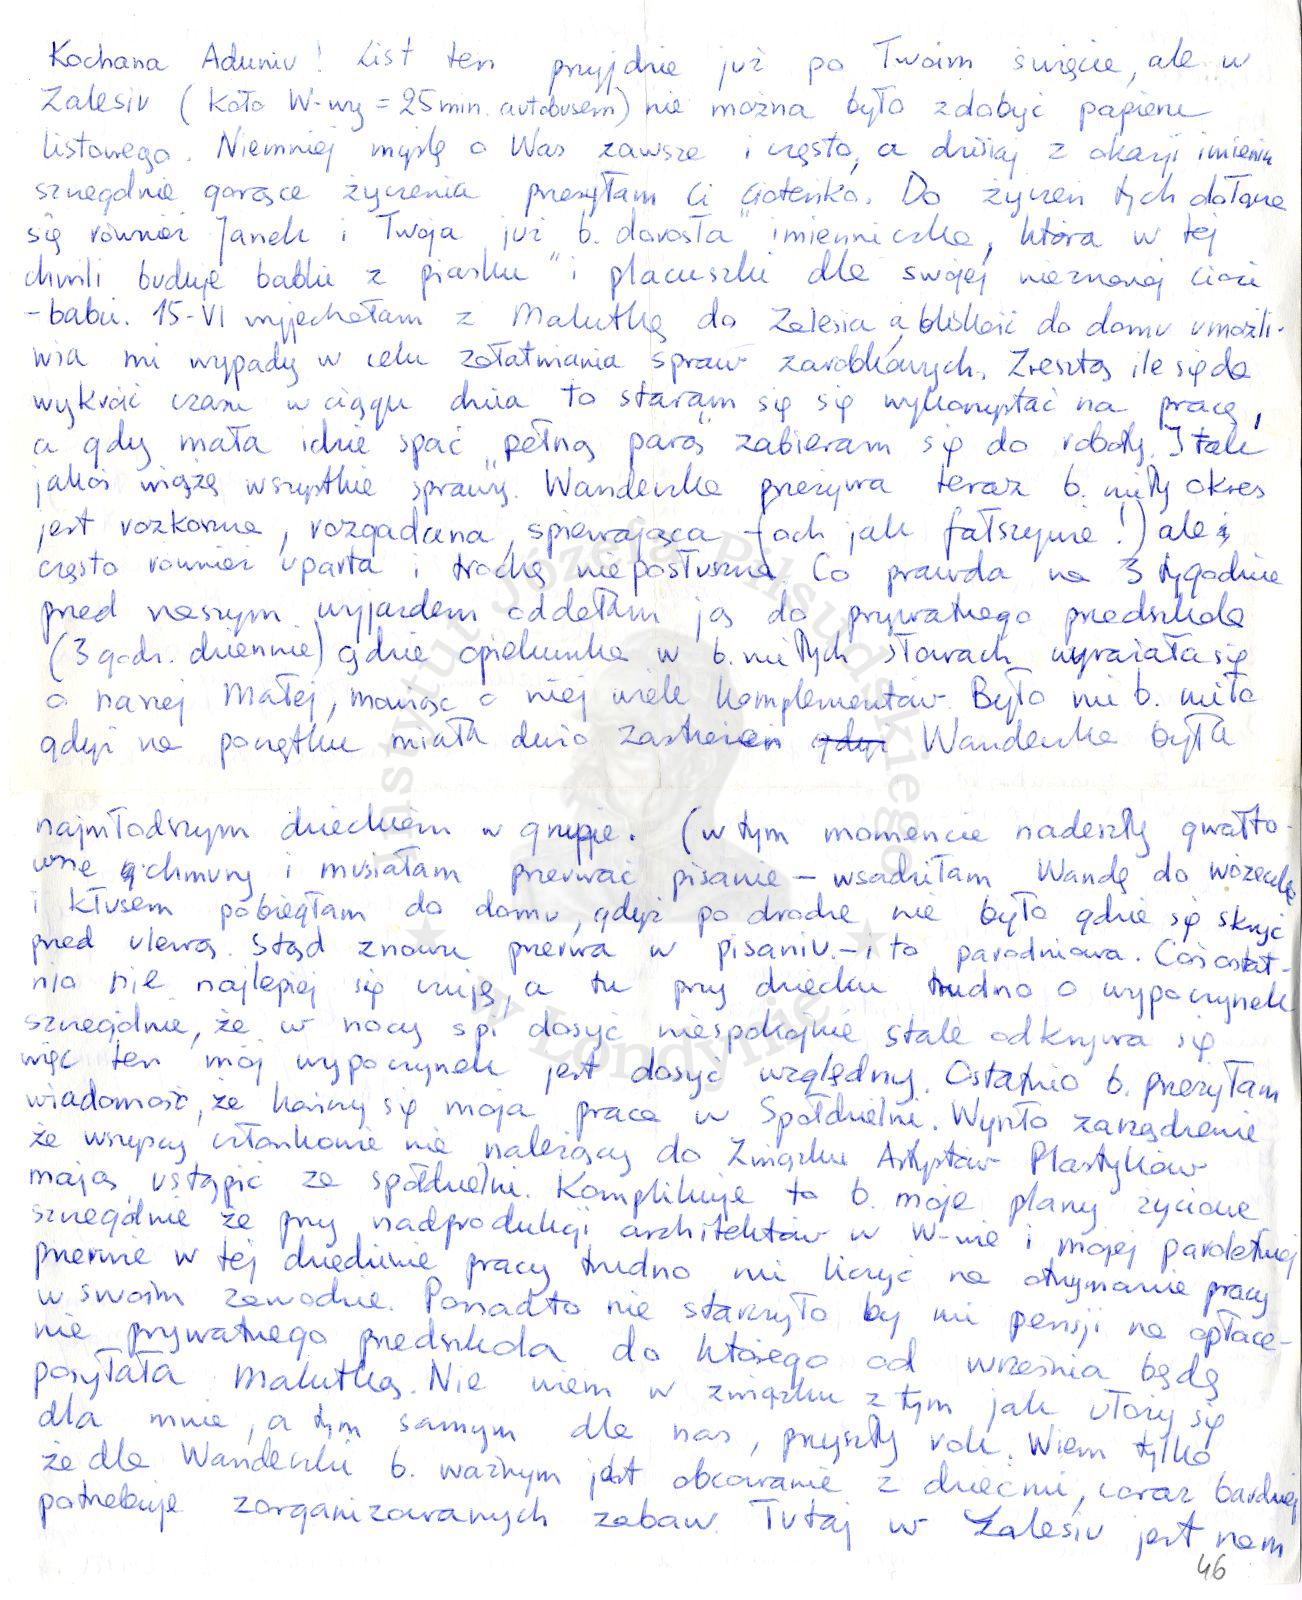 Kochana Aduniu! List ten przyjdzie już po Twoim święcie, ale w
Zalesiu (koło W-wy = 25 min. autobusem) nie można było zdobyć papieru
listowego. Niemniej myślę o Was zawsze i często, a dzisiaj z okazji imienin
szczególnie gorące życzenia przesyłam Ci Cioteńko. Do życzeń tych dołącza
się również Janek i Twoja już b. dorosła "imienniczka, która w tej
chwili buduje babki z piasku" i placuszki dla swojej nieznanej cioci
-babci. 15-VI wyjechałam z Malutką do Zalesia, a bliskość do domu umożli-
wia mi wypady w celu załatwiania spraw zarobkowych. Zresztą ile się da
wykroić czasu w ciągu dnia to staram się się wykorzystać na pracę,
a gdy mała idzie spać "pełną parą" zabieram się do roboty. I tak
jakoś wiążę wszystkie sprawy. Wandeczka przeżywa teraz b. miły okres
jest rozkoszna, rozgadana, śpiewająca – (och jak fałszywie!) ale i
często również uparta i trochę nieposłuszna. Co prawda na 3 tygodnie
przed naszym wyjazdem oddałam ją do prywatnego przedszkola
(3 godz. dziennie) gdzie opiekunka w b. miłych słowach wyrażała się
o naszej Małej, mówiąc o niej wiele komplementów. Było mi b. miło
gdyż na początku miała dużo zastrzeżeń gdyż Wandeczka była
najmłodszym dzieckiem w grupie. (w tym momencie nadeszły gwałto-
wne chmury i musiałam przerwać pisanie – wsadziłam Wandę do wózeczka
i kłusem pobiegłam do domu, gdyż po drodze nie było gdzie się skryć
przed ulewą. Stąd znowu przerwa w pisaniu – i to parodniowa. Coś ostat-
nio nie najlepiej się czuję, a tu przy dziecku trudno o wypoczynek
szczególnie, że w nocy śpi dosyć niespokojnie stale odkrywa się
więc ten mój wypoczynek jest dosyć względny. Ostatnio b. przeżyłam
wiadomość, że kończy się moja praca w Spółdzielni. Wyszło zarządzenie
że wszyscy członkowie nie należący do Związku Artystów Plastyków
mają ustąpić ze spółdzielni. Komplikuje to b. moje plany życiowe
szczególnie że przy nadprodukcji architektów w W-wie i mojej paroletniej
przerwie w tej dziedzinie pracy trudno mi liczyć na otrzymanie pracy
w swoim zawodzie. Ponadto nie starczyło by mi pensji na opłace-
nie prywatnego przedszkola do którego od września będę
posyłała Malutką. Nie wiem w związku z tym jak ułoży się
dla mnie, a tym samym dla nas, przyszły rok. Wiem tylko
że dla Wandeczki b. ważnym jest obcowanie z dziećmi, coraz bardziej
potrzebuje zorganizowanych zabaw. Tutaj w Zalesiu jest nam
46
Instytut Józefa Piłsudskiego
w Londynie